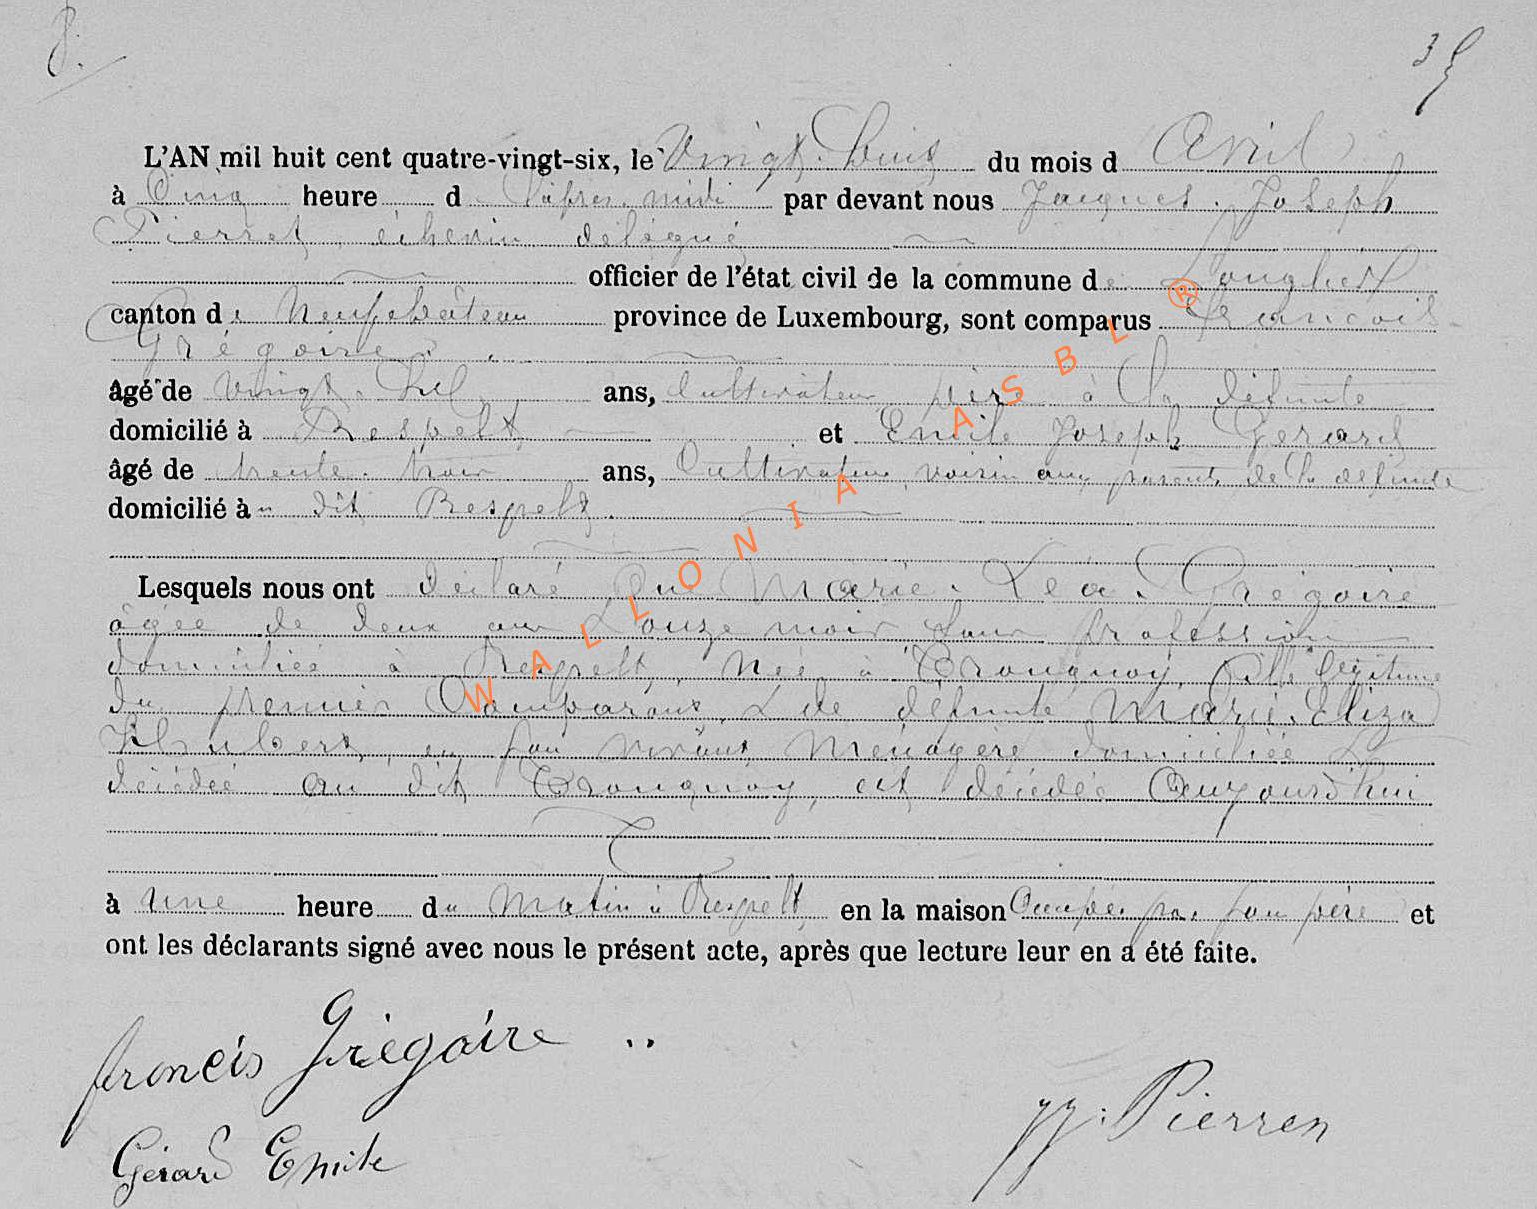 8.
35
L'AN mil huit cent quatre-vingt-six, le Vingt-huit du mois d Avril
à Cinq heure d L'après-midi par devant nous Jacques-Joseph
Pierret, échevin délégué
officier de l'état civil de la commune de Longlier
canton de Neufchâteau province de Luxembourg, sont comparus François
Grégoire
âgé de vingt ans, Cultivateur, père à la défunte
domicilié à Respelt et Emile Joseph Gerard
âgé de trente-trois ans, Cultivateur, voisin aux parents de la défunte
domicilié au dit Respelt.
Lesquels nous ont déclaré Que Marie-Léa Grégoire
âgée de deux ans Douze mois sans profession
domiciliée à Respelt, Née à Tronquoy, fille légitime
du premier Comparant, & de défunte Marie-Eliza
en son vivant Ménagère domiciliée &
décédée au dit Tronquoy, est décédée Aujourd'hui
à une heure du Matin à Respelt, en la maison Occupée par son père et
ont les déclarants signé avec nous le présent acte, après que lecture leur en a été faite.
francis Grégoire
Gérard Emile
JJ. Pierret
WALLONIA ASBL ®